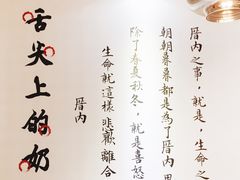 厝內之事，就是，生命之
朝朝暮暮都是為了厝內
除了春夏秋冬，就是喜怒
生命就這樣 悲歡離合
厝內
舌尖上的奶